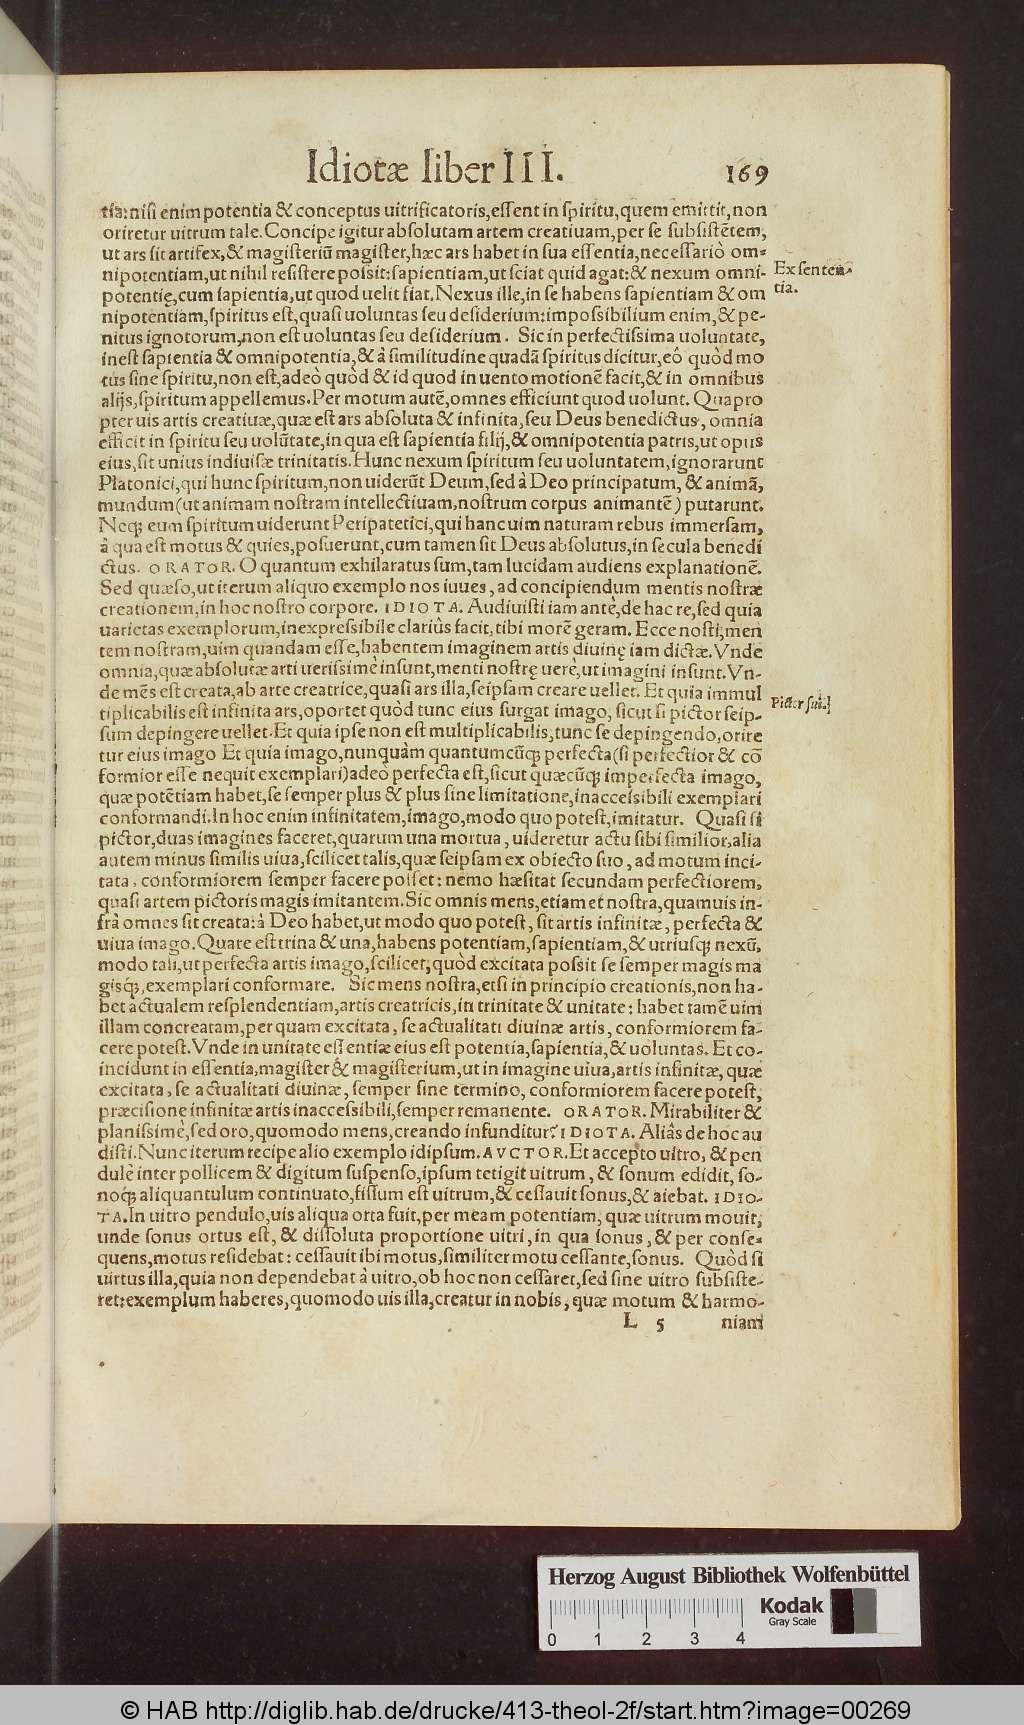 Idiotæ liber III. 169
tia: nisi enim potentia & conceptus uitrificatoris, essent in spiritu, quem emittit, non
oriretur uitrum tale. Concipe igitur absolutam artem creatiuam, per se subsistẽtem,
ut ars sit artifex, & magisteriũ magister, hæc ars habet in sua essentia, necessariò om-
nipotentiam, ut nihil resistere possit: sapientiam, ut sciat quid agat: & nexum omni-
Ex senten-
tia.
potentię, cum sapientia, ut quod uelit fiat. Nexus ille, in se habens sapientiam & om
nipotentiam, spiritus est, quasi uoluntas seu desiderium: impossibilium enim, & pe-
nitus ignotorum, non est uoluntas seu desiderium. Sic in perfectissima uoluntate,
inest sapientia & omnipotentia, & à similitudine quadã spiritus dicitur, eô quòd mo
tus sine spiritu, non est, adeò quòd & id quod in uento motionẽ facit, & in omnibus
alijs, spiritum appellemus. Per motum autẽ, omnes efficiunt quod uolunt. Quapro
pter uis artis creatiuæ, quæ est ars absoluta & infinita, seu Deus benedictus, omnia
efficit in spiritu seu uolũtate, in qua est sapientia filij, & omnipotentia patris, ut opus
eius, sit unius indiuisæ trinitatis. Hunc nexum spiritum seu uoluntatem, ignorarunt
Platonici, qui hunc spiritum, non uiderũt Deum, sed à Deo principatum, & animã,
mundum (ut animam nostram intellectiuam, nostrum corpus animantẽ) putarunt.
Neq; eum spiritum uiderunt Peripatetici, qui hanc uim naturam rebus immersam,
à qua est motus & quies, posuerunt, cum tamen sit Deus absolutus, in secula benedi
ctus. ORATOR. O quantum exhilaratus sum, tam lucidam audiens explanationẽ.
Sed quæso, ut iterum aliquo exemplo nos iuues, ad concipiendum mentis nostræ
creationem, in hoc nostro corpore. IDIOTA. Audiuisti iam antè, de hac re, sed quia
uarietas exemplorum, inexpressibile clariùs facit, tibi morẽ geram. Ecce nosti, men
tem nostram, uim quandam esse, habentem imaginem artis diuinę iam dictæ. Vnde
omnia, quæ absolutæ arti uerissimè insunt, menti nostrę uerè, ut imagini insunt. Vn-
de mẽs est creata, ab arte creatrice, quasi ars illa, seipsam creare uellet. Et quia immul
Pictor sui.
tiplicabilis est infinita ars, oportet quòd tunc eius surgat imago, sicut si pictor seip-
sum depingere uellet. Et quia ipse non est multiplicabilis, tunc se depingendo, orire
tur eius imago Et quia imago, nunquàm quantumcũq; perfecta (si perfectior & cõ
formior esse nequit exemplari) adeò perfecta est, sicut quæcũq; imperfecta imago,
quæ potẽtiam habet, se semper plus & plus sine limitatione, inaccessibili exemplari
conformandi. In hoc enim infinitatem, imago, modo quo potest, imitatur. Quasi si
pictor, duas imagines faceret, quarum una mortua, uideretur actu sibi similior, alia
autem minus similis uiua, scilicet talis, quæ seipsam ex obiecto suo, ad motum inci-
tata, conformiorem semper facere posset: nemo hæsitat secundam perfectiorem,
quasi artem pictoris magis imitantem. Sic omnis mens, etiam et nostra, quamuis in-
frà omnes sit creata: à Deo habet, ut modo quo potest, sit artis infinitæ, perfecta &
uiua imago. Quare est trina & una, habens potentiam, sapientiam, & utriusq; nexũ,
modo tali, ut perfecta artis imago, scilicet, quòd excitata possit se semper magis ma
gisq;, exemplari conformare. Sic mens nostra, etsi in principio creationis, non ha-
bet actualem resplendentiam, artis creatricis, in trinitate & unitate: habet tamẽ uim
illam concreatam, per quam excitata, se actualitati diuinæ artis, conformiorem fa-
cere potest. Vnde in unitate essentiæ eius est potentia, sapientia, & uoluntas. Et co-
incidunt in essentia, magister & magisterium, ut in imagine uiua, artis infinitæ, quæ
excitata, se actualitati diuinæ, semper sine termino, conformiorem facere potest,
præcisione infinitæ artis inaccessibili, semper remanente. ORATOR. Mirabiliter &
planissimè, sed oro, quomodo mens, creando infunditur? IDIOTA. Aliâs de hoc au
disti. Nunc iterum recipe alio exemplo idipsum. AVCTOR. Et accepto uitro, & pen
dulè inter pollicem & digitum suspenso, ipsum tetigit uitrum, & sonum edidit, so-
noq́; aliquantulum continuato, fissum est uitrum, & cessauit sonus, & aiebat. IDIO-
TA. In uitro pendulo, uis aliqua orta fuit, per meam potentiam, quæ uitrum mouit,
unde sonus ortus est, & dissoluta proportione uitri, in qua sonus, & per conse-
quens, motus residebat: cessauit ibi motus, similiter motu cessante, sonus. Quòd si
uirtus illa, quia non dependebat à uitro, ob hoc non cessaret, sed sine uitro subsiste-
ret: exemplum haberes, quomodo uis illa, creatur in nobis, quæ motum & harmo-
L 5 niam
Herzog August Bibliothek Wolfenbüttel
Kodak
Gray Scale
0 1 2 3 4
© HAB http://diglib.hab.de/drucke/413-theol-2f/start.htm?image=00269